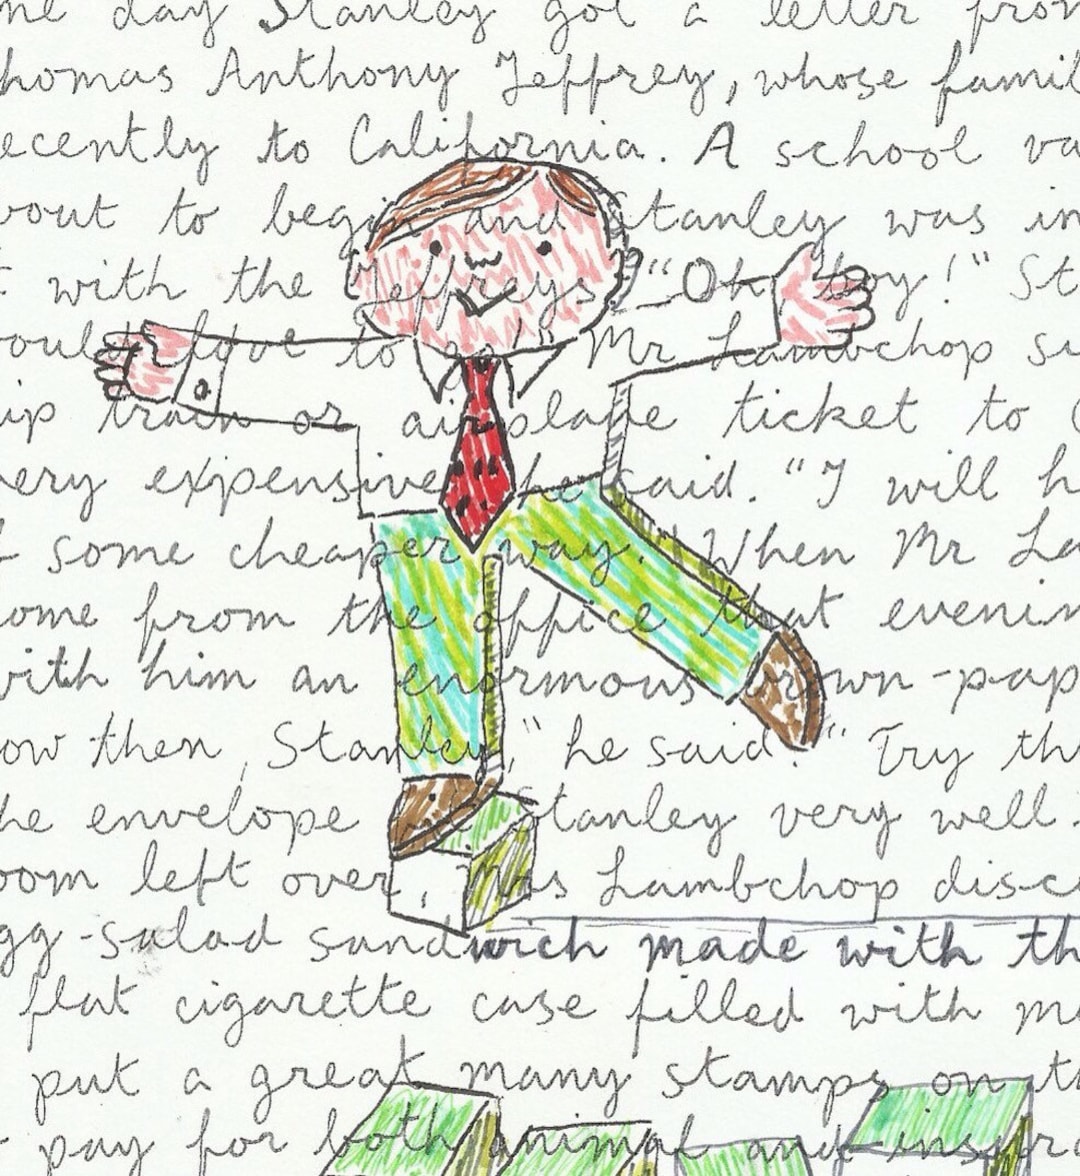 ne day Stanley got a letter from
homas Anthony Jeffrey, whose famil
ecently to California. A school va
bout to begin and Stanley was in
t with the Jeffreys. "Oh boy!" St
ould love to go" Mr Lambchop s
ip train or airplane ticket to
ery expensive he said. "I will h
f some cheaper way." When Mr La
ome from the office that evenin
with him an enormous brown-pap
ow then, Stanley," he said. "Try th
he envelope Stanley very well.
oom left over, Mrs Lambchop disc
gg-salad sandwich made with th
flat cigarette case filled with m
put a great many stamps on t
pay for both animal and insura